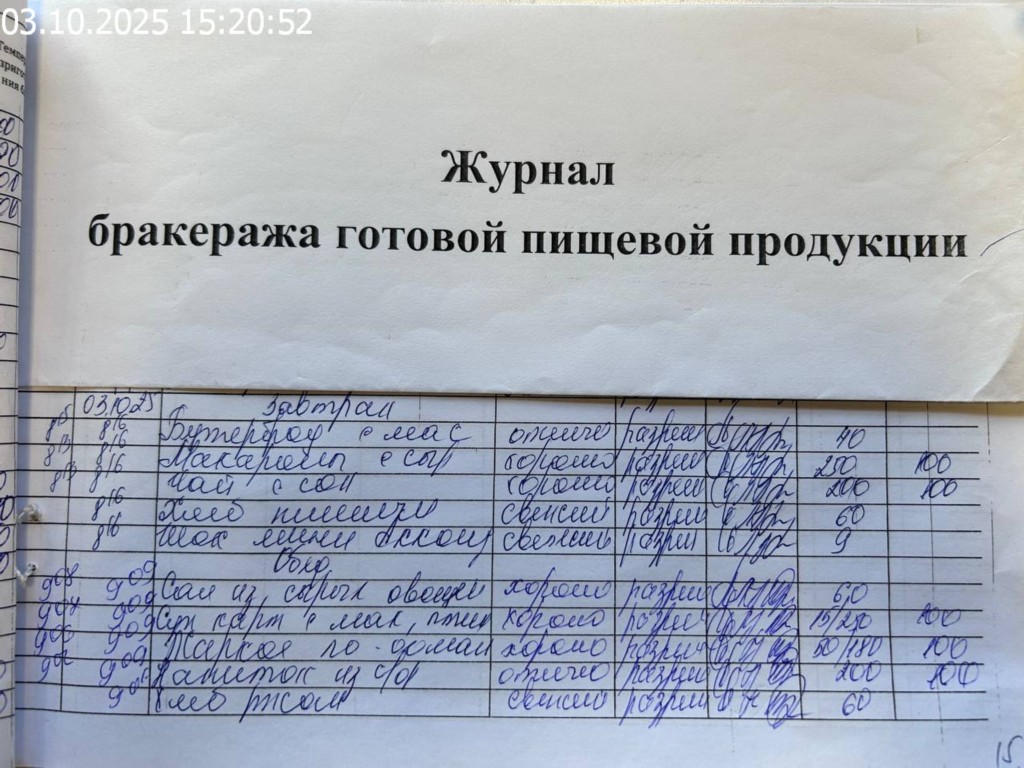 03.10.2025 15:20:52
Темпе
приго
ния
Журнал
бракеража готовой пищевой продукции
03.10.25 Завтрак
8 16 Бутерброд с мас отлично разреш 40
8 16 Макароны с сыр хорошо разреш 250 100
8 16 Чай с сах хорошо разреш 200 100
8 16 Хлеб пшенич свежий разреш 60
8 16 Шок свежий разреш 9
Обед
9 08 9 09 Сал из сырых овощей хорошо разреш 60
9 09 Суп карт с мак, птиц хорошо разреш 15/250 100
9 09 Жаркое по-домаш хорошо разреш 50/180 100
Напиток из отлично разреш 200 100
Хлеб ржан свежий разреш 60
15